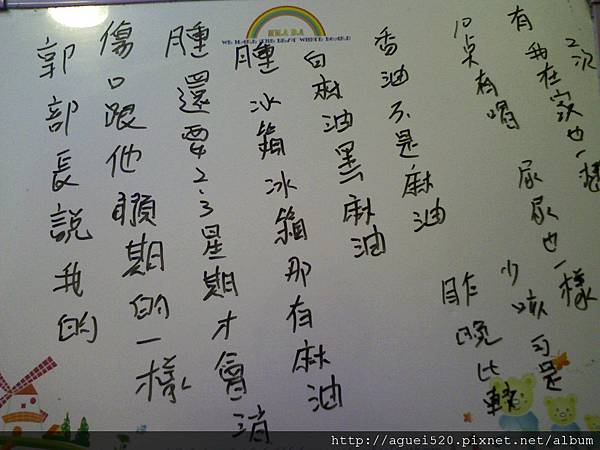 郭部長說我的
傷口跟他預期的一樣
腫還要2、3星期才會消
腫冰箱冰箱那有麻油
白麻油黑麻油
香油不是麻油
昨晚比較
少咳可是
10点有喝
尿尿也一樣
有我在家也一樣
2次
WE MAKE THE BEST WHITE BOARD
http://aguei520.pixnet.net/album